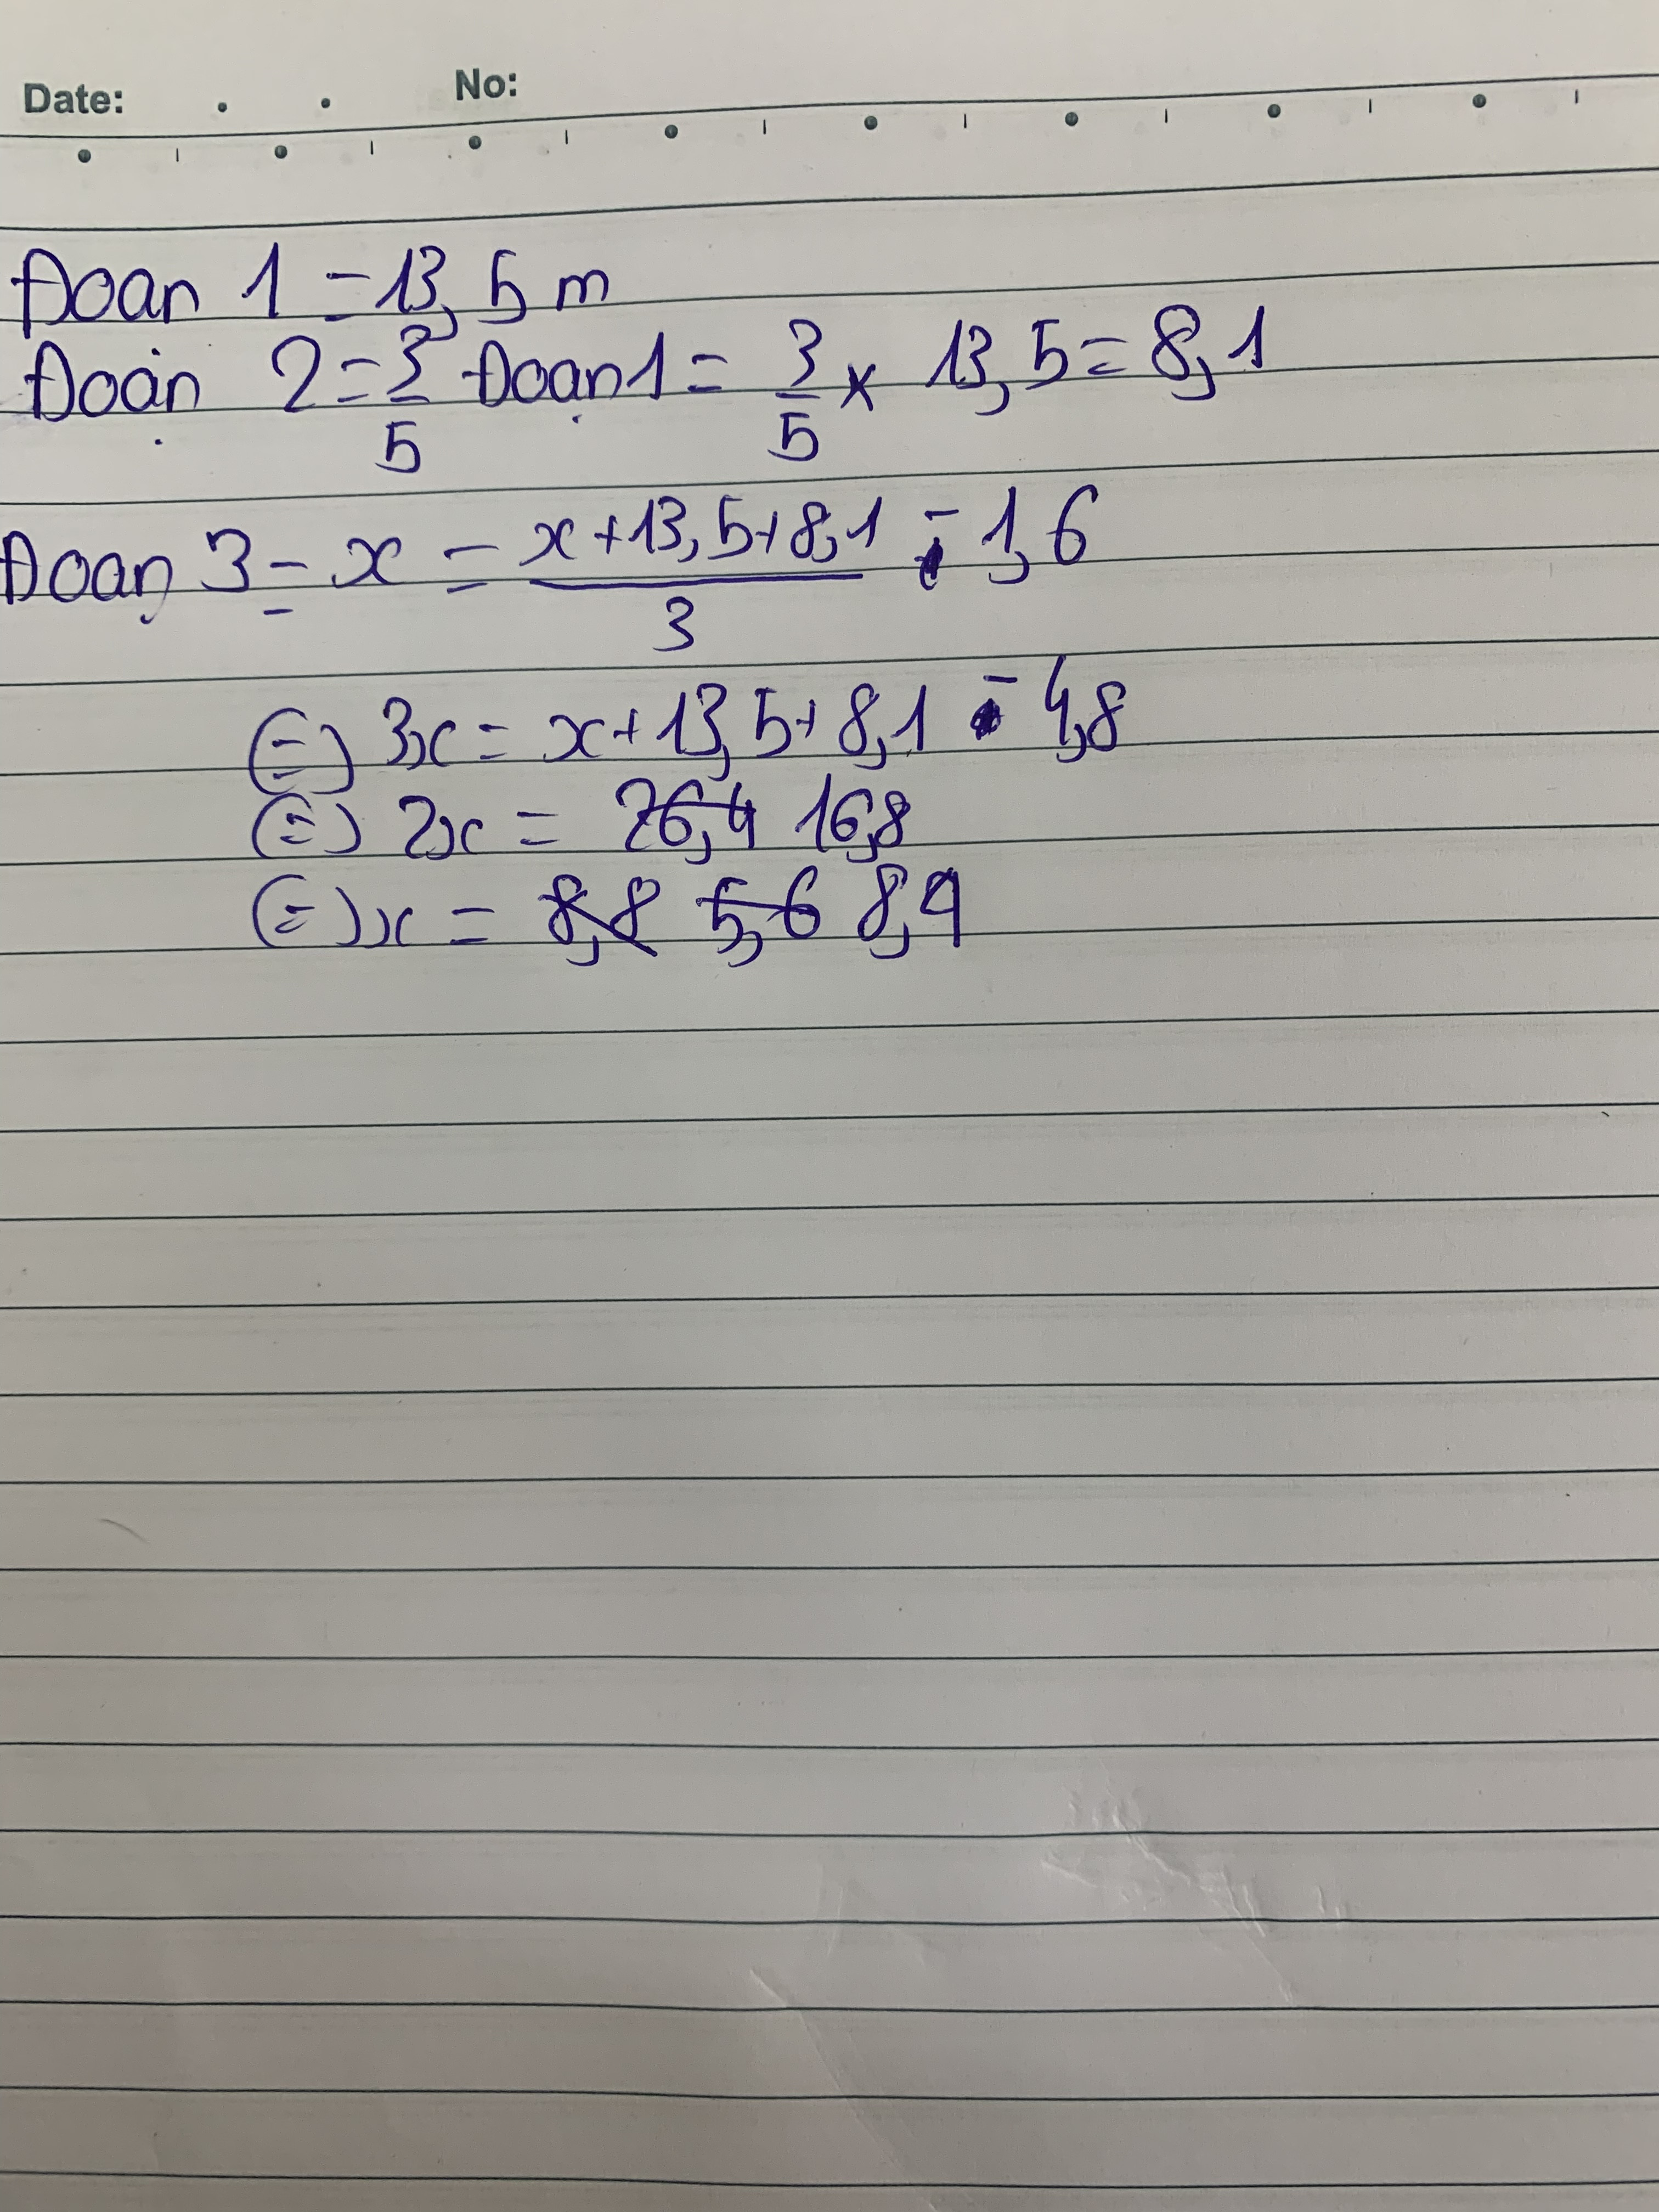 Date: No:
Đoạn 1 = 13,5 m
Đoạn 2 = 3/5 Đoạn 1 = 3/5 x 13,5 = 8,1
Đoạn 3 = x = (x + 13,5 + 8,1)/3 - 1,6
(=) 3x = x + 13,5 + 8,1 - 4,8
(=) 2x = 26,4 16,8
(=) x = 8,8 5,6 8,4